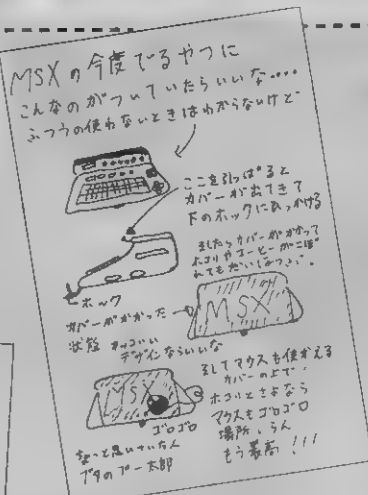 MSXの今度でるやつに
こんなのがついていたらいいな‥‥
ふつうの使わないときはわからないけど
ここを引っぱると
カバーが出てきて
下のホックにひっかける
ましたらカバーがかかって
ホコリやコーヒーがこぼ
れてもだいじょうぶ。
ホック
カバーがかかった
状態 カッコいい
デザインならいいな
MSX
そしてマウスも使かえる
カバーの上で、
ホコリとさよなら
マウスもゴロゴロ
場所いらん
もう最高!!!
MSX
ゴロゴロ
ちょっと思いついた人
ブタのプー太郎